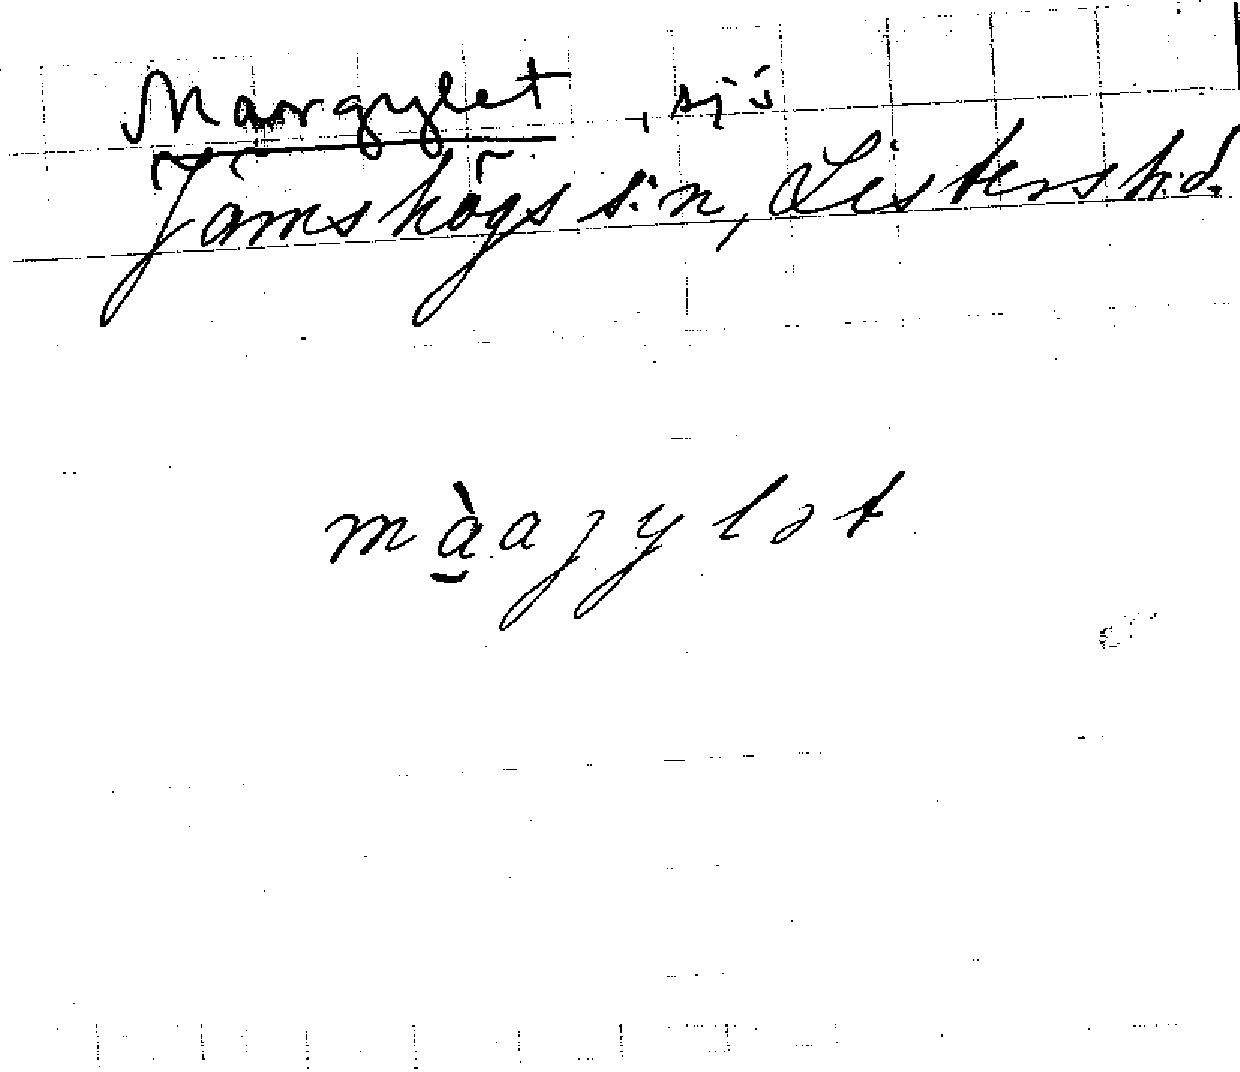 Maorgylet, sjö
Jämshögs s:n, Listers h:d.
mà̱aȷylət